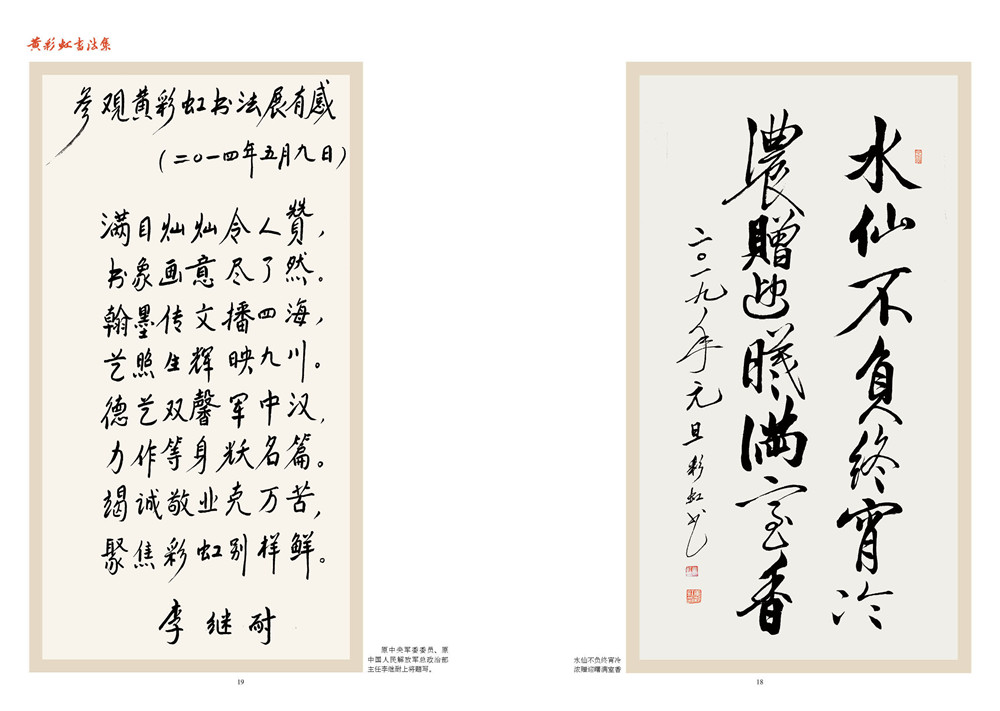 黄彩虹书法集
参观黄彩虹书法展有感
(二〇一四年五月九日)
满目灿灿令人贊,
书象画意尽了然。
翰墨传文播四海,
艺照生辉映九川。
德艺双馨军中汉,
力作等身名篇。
竭诚敬业克万苦,
聚焦彩虹别样鲜。
李继耐
原中央军委委员、原
中国人民解放军总政治部
主任李继耐上将题写。
19
水仙不負终宵冷
濃贈迎曦满室香
二〇一九年元旦彩虹书
水仙不负终宵冷
浓赠迎曙满室香
18